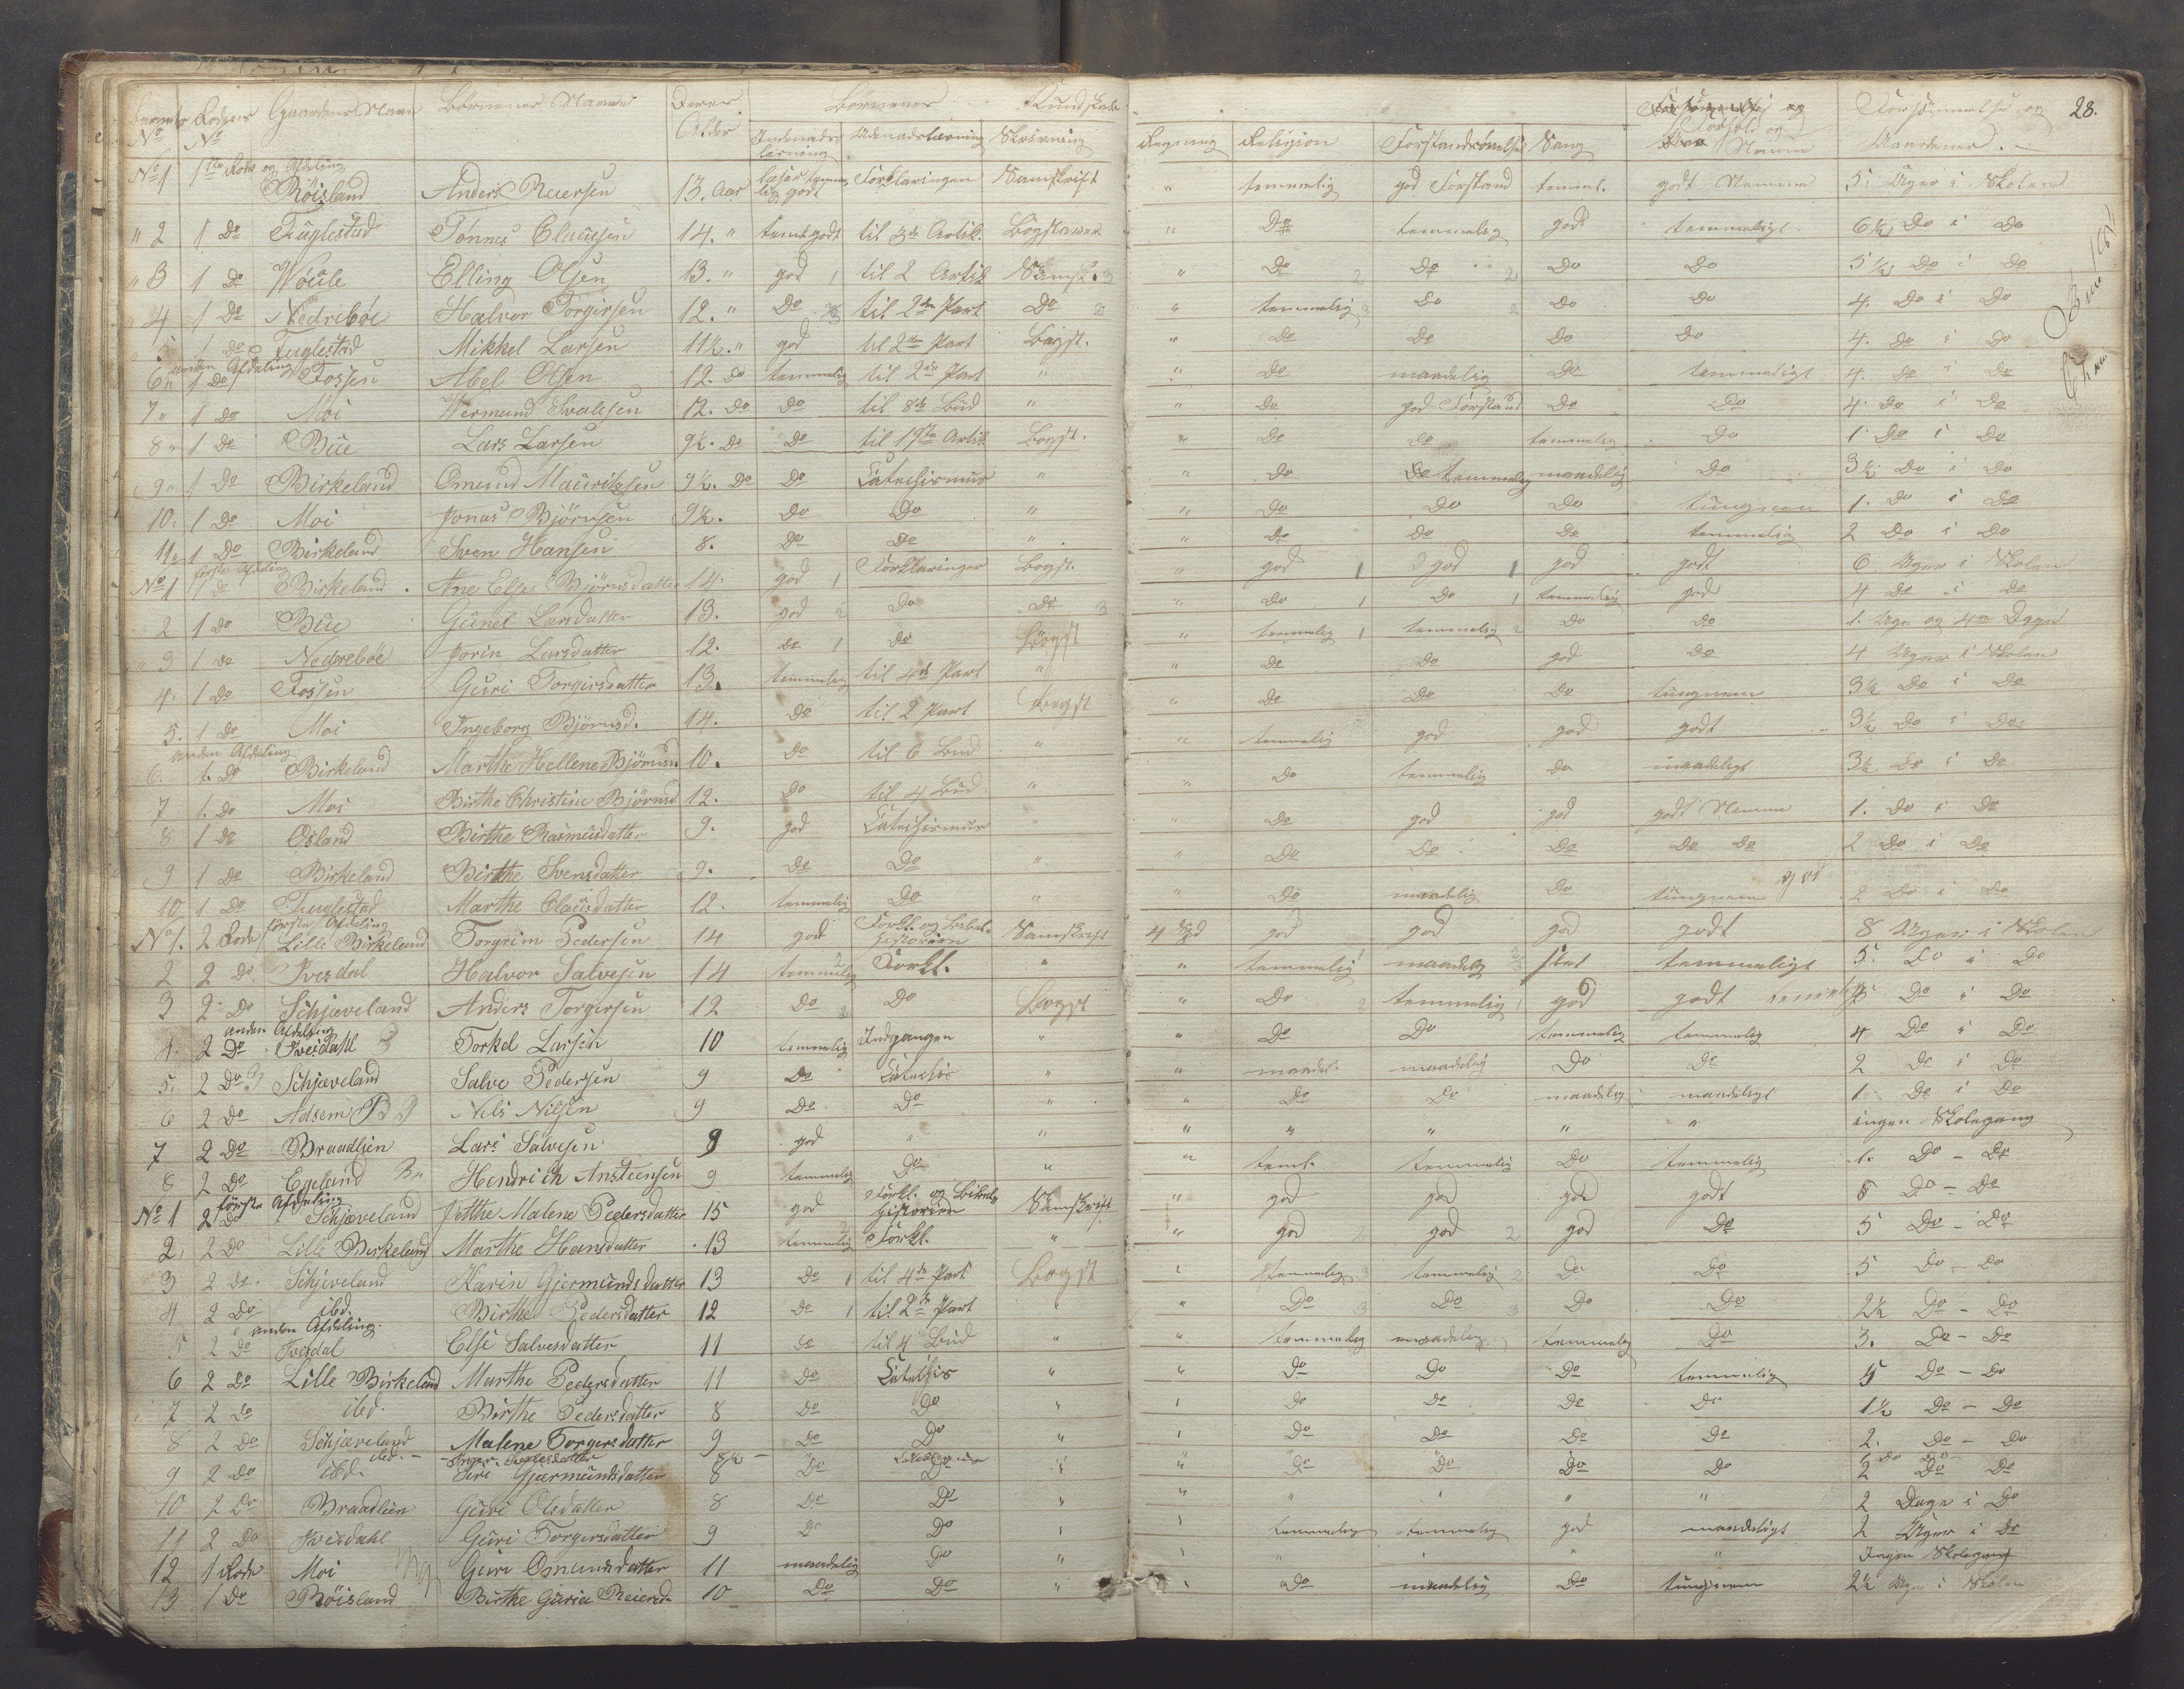 28.
Børnenes No Rodens No Gaardens Navn Børnenes Navne Deres Alder Børnenes Kundskab
Indenads læsning Udenadslæsning Skrivning Regning Religion Forstandsøvelse Sang Forhold og Nemme Forsømmelse og
No 1 1ste Rode og Afdeling Röisland Anders Reiersen 13. Aar læser temmelig godt Forklaringen Samskrift " temmelig god Forstand temml. godt Nemme 5 Uger i Skolen
" 2 1 Do Fuglestad Tönnes Clausen 14. " teml. godt til 3de Artik. Bogstaver " Do temmelig god temmeligt 6½ Do i Do
" 3 1 Do Elling Olsen 13. " god 1 til 2 Artik Samsk. 3 " Do 2 Do 2 Do Do 5½ Do i Do
4 1 Do Nedreböe Halvor Torgirsen 12. " Do til 2den Part Do 2 " temmelig 3 Do 2 Do Do 4. Do i Do
5 1 Do Fuglestad Mikkel Larsen 11½. " god til 2den Part Bogst. " Do Do Do Do 4. Do i Do
anden Afdeling
6 " 1 Do Fossen Abel Olsen 12. Do temmelig til 2den Part " " Do maadelig Do temmeligt 4. Do i Do
7 " 1 Do Moi Vermund Svalesen 12. Do Do til 8de Bud " " Do god Forstand Do Do 4 Do i Do
8 " 1 Do Bue Lars Larsen 9½. Do Do til 1ste Artik. Bogst. " Do Do temmelig Do 1 Do i Do
9 " 1 Do Birkeland Omund Mauritzen 9½. Do Do Catechismus " " Do temmelig maadelig Do 3½ Do i Do
10. 1 Do Moi Jonas Björnsen 9½. Do Do " " Do Do Do tungnem 1. Do i Do
11 " 1 Do Birkeland Sven Hansen 8. Do Do " " Do Do Do temmelig 2 Do i Do
første Afdeling
No 1 1 Do Birkeland. Ane Else Björnsdatter 14. god 1 Forklaringer Bogst. " god 1 god 1 god godt 6 Uger i Skolen
2 1 Do Bue Gunel Larsdatter 13. god 2 Do Do 3 " Do 1 Do 1 temmelig god 4 Do i Do
" 3 1 Do Nedreböe Jorin Larsdatter 12. Do 1 Do Bogst " temmelig 1 temmelig 2 Do Do 1. Uge og 4re Dage
4. 1 Do Fossen Guri Torgirsdatter 13. temmelig til 4de Part " " Do Do god Do 4 Uger i Skolen
5. 1 Do Moi Ingeborg Björnsd. 14. Do til 2 Part Bogst " Do Do Do tungnem 3½ Do i Do
anden Afdeling
6. 1. Do Birkeland Marthe Hellene Björnsd. 10. Do til 6 Bud " " temmelig god god godt 3½ Do i Do
7 1. Do Moi Birthe Christine Björnsd 12. Do til 4 Bud " " Do temmelig Do maadeligt 3½ Do i Do
8 1 Do Osland Birthe Rasmusdatter 9. god Catechismus " " Do god god godt Nemme 1. Do i Do
9 1 Do Birkeland Birthe Svensdatter 9. Do Do " " Do Do Do Do Do 2 Do i Do
10 1 Do Fuglestad Marthe Clausdatter 12. temmelig Do " " Do maadelig Do tungnem 2 Do i Do
første Afdeling
No 1. 2 Rode Lille Birkeland Torgrim Pedersen 14 god Forkl. og Bibel-Historien Samskrift god god god godt 8 Uger i Skolen
2 2 Do Ivesdal Halvor Salvesen 14 temmelig Forkl. " " temmelig maadelig slet temmeligt 5. Do i Do
3 2 Do Schjæveland Anders Torgersen 12 Do Do Bogst " Do 2 temmelig 1 god godt Do i Do
anden Afdeling
4. 2 Do Ivesdahl Torkel Larsen 10 temmelig Indgangen " " Do Do temmelig temmelig 4 Do i Do
5. 2 Do Schjæveland Salve Pedersen 9 Do Catechis " " maadel. maadelig Do Do 2 Do i Do
6 2 Do Adsem Nels Nilsen 9 Do Do " " Do Do maadelig maadeligt 1 Do i Do
7 2 Do Braadlien Lars Salvesen 9 god " " " " " " " ingen Skolegang
8 2 Do Egeland Hendrich Ansteensen 9 temmelig Do " " teml. temmelig Do temmelig 1. Do - Do
første Afdeling
No 1 2 Do Schjæveland Jitthe Malene Pedersdatter 15 god Forkl. og Bibels Historien Samskrift " god god god godt 8 Do - Do
2. 2 Do Lille Birkeland Marthe Hansdatter 13 temmelig 2 Forkl. " " god god 2 god Do 5 Do - Do
3 2 Do. Schjæveland Karin Gjermundsdatter 13 Do 1 til 4de Part Bogst " temmelig 3 temmelig 2 Do Do 5 Do - Do
4 2 Do ibd. Birthe Pedersdatter 12 Do 1 til 2den Part " " Do 3 Do 3 Do Do 2½ Do - Do
anden Afdeling.
5 2 Do Ivesdal Else Salvesdatter 11 Do til 4 Bud " " temmelig maadelig temmelig Do 3. Do - Do
6 2 Do Lille Birkeland Marthe Pedersdatter 11 Do Catechis " " Do Do Do temmelig 5 Do - Do
7 2 Do ibd. Birthe Pedersdatter 8 Do Do " " Do Do Do Do 1½ Do - Do
8 2 Do Schjæveland Malene Torgersdatter 9 Do Do " " Do Do Do Do 2. Do - Do
ibd. - 8½ -
9 2 Do ibd. Siri Gjermundsdatter 8 Do Do " " Do Do Do Do 2 Do Do
10 2 Do Braadlien Guri Olsdatter 8 Do Do " " " " " " 2 Dage i Do
11 2 Do Ivesdahl Guri Torgersdatter 9 Do Do " " temmelig temmelig god maadeligt 2 Uger i Do
12 1 Rode Moi Guri Omundsdatter 11 maadelig Do " " " " " " Ingen Skolegang
13 1 Do Röisland Birthe Guria Reiersd. 10 Do Do " " Do maadelig Do tungnem 2½ Uger i Skolen